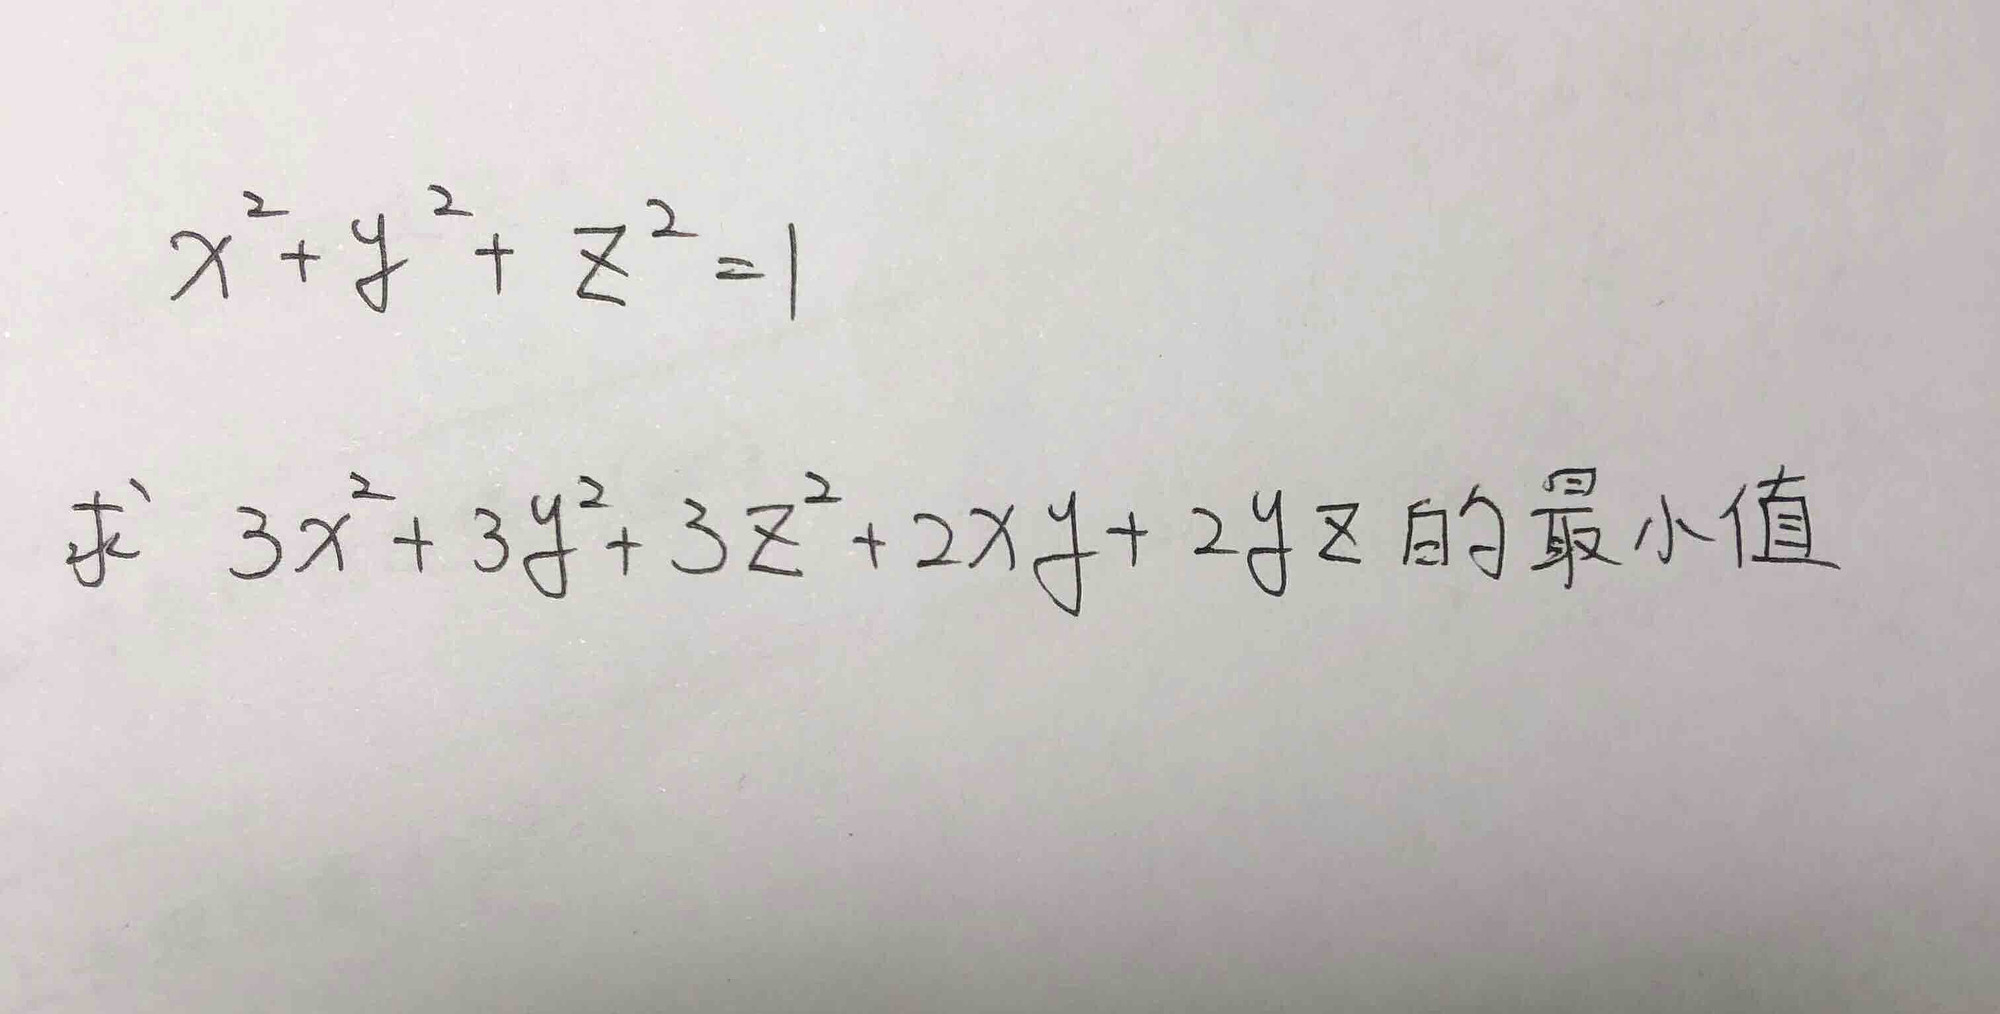 x²+y²+z²=1
求 3x²+3y²+3z²+2xy+2yz的最小值